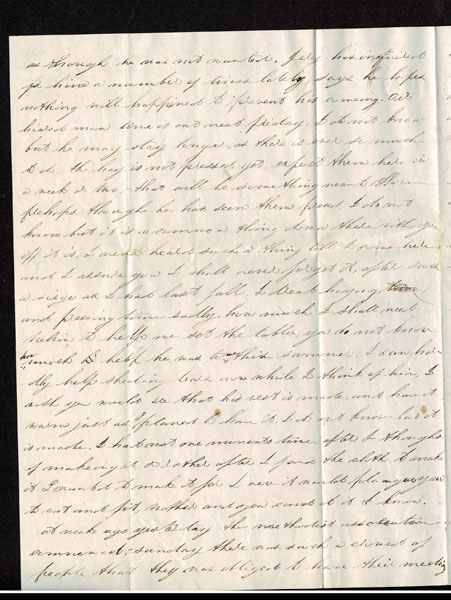 as though he was not wanted. Jery has inquired
for him a number of times lately says he hopes
nothing will happened to prevent his coming. Our
hired man time is out next friday. I do not know
but he may stay longer, as there is ever so much
to do. the hay is not pressed yet. expect them here in
a week or two that will be something new to
perhaps though he has seen them press I do not
know but it is a common thing down there with you
if it is, I never heard such a thing till I come here
and I assure you I shall never forget it, after such
a siege as I had last fall. I dread haying
and pressing time sadly how much I shall need
to help me set the table, you do not know
how much help he was to me this summer. I can har
dly help shedding tears now while I think of him, I
wish you would see that his vest is made and have it
warm just as I planed to have it I do not know but it
is made. I had not one moments time after I thought
of makeing it or other after I found the cloth to make
it I wanted to make it for I new it would plague you
to cut and fit neither and you cannot do it I know.
A week ago yesterday the methodist association
commenced, sunday there was such a crowd of
people that they was obliged to have their meeting